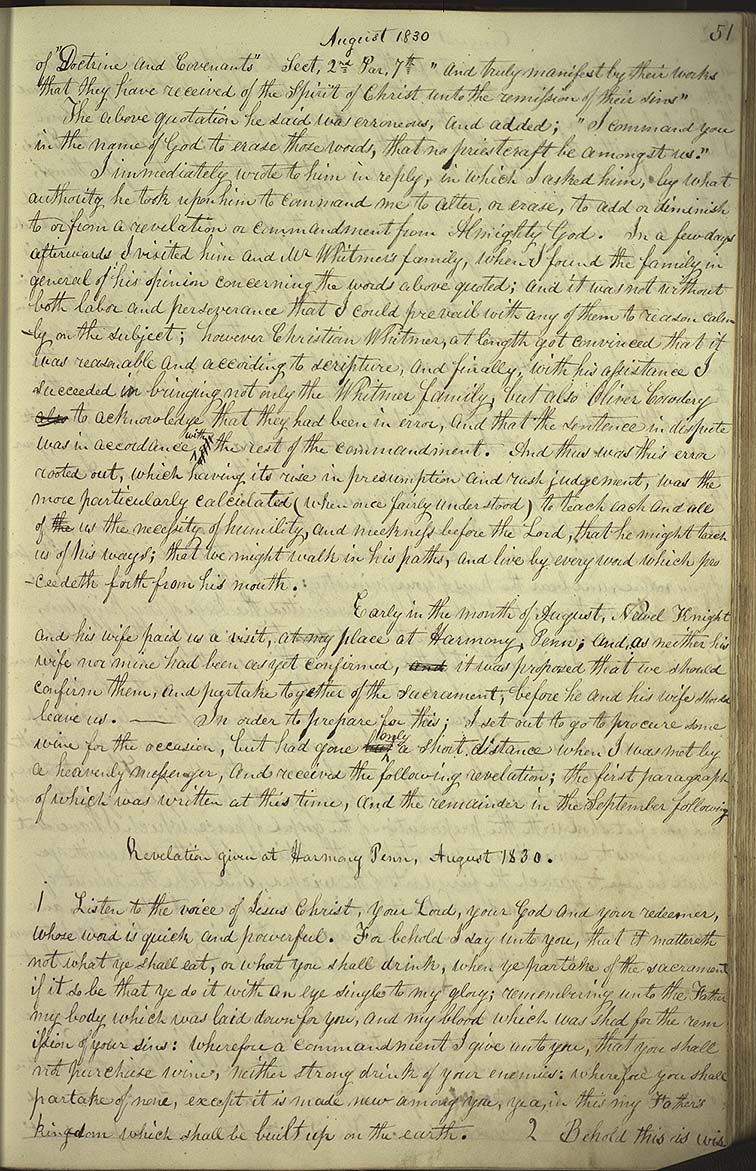 August 1830
51
of "Doctrine and Covenants" Sect, 2nd Par, 7th "And truly manifest by their works
that they have received of the Spirit of Christ unto the remission of their sins"
The above quotation he said was erroneous, and added; "I command you
in the name of God to erase those words, that no priestcraft be amongst us."
I immediately wrote to him in reply, in which I asked him, by what
authority he took upon him to command me to alter, or erase, to add or diminish
to or from a revelation or commandment from Almighty God. In a few days
afterwards I visited him and Mr Whitmers family, when I found the family in
general of his opinion concerning the words above quoted; and it was not without
both labor and perseverance that I could prevail with any of them to reason calm-
-ly on the subject; however Christian Whitmer, at length got convinced that it
was reasonable and according to scripture, and finally, with his assistance I
succeeded in bringing not only the Whitmer family, but also Oliver Cowdery
also to acknowledge that they had been in error, and that the sentence in dispute
was in accordance with the rest of the commandment. And thus was this error
rooted out, which having its rise in presumption and rash judgement, was the
more particularly calculated (when once fairly understood) to teach each and all
of the us the necessity of humility, and meekness before the Lord, that he might teach
us of his ways; that we might walk in his paths, and live by every word which pro
-ceedeth forth from his mouth.
Early in the month of August, Newel Knight
and his wife paid us a visit, at my place at Harmony, Penn; and, as neither his
wife nor mine had been as yet confirmed, and it was proposed that we should
confirm them, and partake together of the sacrament, before he and his wife should
leave us. — In order to prepare for this; I set out to go to procure some
wine for the occasion, but had gone only a short distance when I was met by
a heavenly messenger, and received the following revelation; the first paragraph
of which was written at this time, and the remainder in the September following
Revelation given at Harmony Penn, August 1830.
1 Listen to the voice of Jesus Christ, your Lord, your God and your redeemer,
whose word is quick and powerful. For behold I say unto you, that it mattereth
not what ye shall eat, or what you shall drink, when ye partake of the sacrament
if it so be that ye do it with an eye single to my glory; remembering unto the Father
my body which was laid down for you, and my blood which was shed for the rem
ission of your sins: wherefore a commandment I give unto you, that you shall
not purchase wine, neither strong drink of your enemies: wherefore you shall
partake of none, except it is made new among you, yea, in this my Father's
kingdom which shall be built up on the earth. 2 Behold this is wis